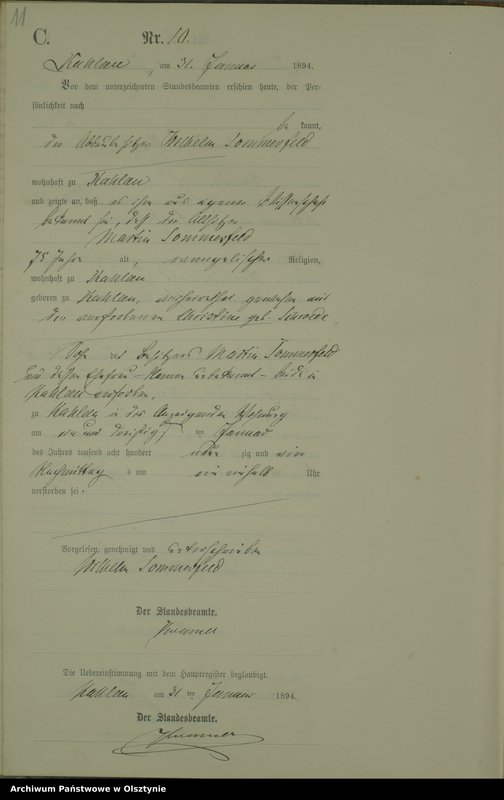 11
C.
Nr. 10.
Kahlau, am 31. Januar 1894.
Vor dem unterzeichneten Standesbeamten erschien heute, der Per-
sönlichkeit nach
be kannt,
der Wilhelm Sommerfeld
wohnhaft zu Kahlau
und zeigte an, daß es ihm aus eigener Wissenschaft
bekannt sei, daß der Altsitzer
Martin Sommerfeld
75 Jahre alt, evangelischer Religion,
wohnhaft zu Kahlau
geboren zu Kahlau, verheirathet gewesen mit
der verstorbenen Christine geb.
Sohn des Besitzers Martin Sommerfeld
und dessen Ehefrau – Namen unbekannt – beide in
Kahlau verstorben,
zu Kahlau in des Anzeigenden Wohnung
am ein und dreißigsten Januar
des Jahres tausend acht hundert neun zig und vier
Nachmittags um ein einhalb Uhr
verstorben sei.
Vorgelesen, genehmigt und unterschrieben
Wilhelm Sommerfeld
Der Standesbeamte.
Die Uebereinstimmung mit dem Hauptregister beglaubigt.
Kahlau am 31 ten Januar 1894.
Der Standesbeamte.
Archiwum Państwowe w Olsztynie